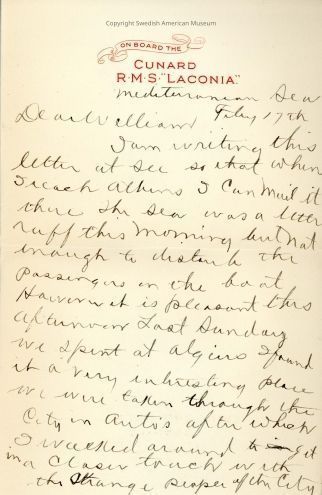 Copyright Swedish American Museum
ON BOARD THE
CUNARD
R·M·S·"LACONIA."
Mediteranian Sea
Feby 17th
Dear William
I am writing this
letter at see so that when
I reach Athens I can mail it
there The Sea was a little
ruff this morning but not
enough to disturb the
passengers on the boat
However it is pleasant this
afternoon Last Sunday
we spent at Algiers I found
it a very interesting place
we were taken through the
City in Autos after which
I walked around to get
in a closer touch with
the strange people of the City